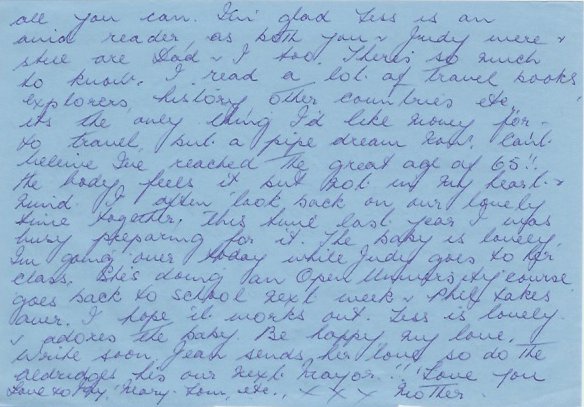 all you can. I'm glad Tess is an
avid reader, as both you & Judy were &
still are Dad & I too. There's so much
to know. I read a lot of travel books
explorers, history, other countries etc,
its the only thing I'd like money for -
to travel, but a pipe dream now! Can't
believe I've reached the great age of 65!!
the body feels it but not in my heart &
mind. I often look back on our lovely
time together. This time last year I was
busy preparing for it. The baby is lovely,
I'm going over today while Judy goes to her
class. She's doing an Open University course
goes back to school next week & Phil takes
over. I hope it works out. Tess is lovely
& adores the baby. Be happy my love,
write soon, Jean sends her love so do the
Aldridges he's our next mayor!! Love you
Love to Mary Tom, etc., x x x Mother.